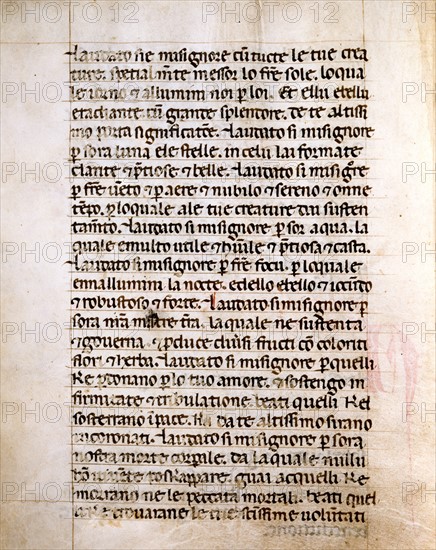 Laudato sie misignore cū tucte le tue crea
ture. spetialm̄te messor lo fr̄e sole. loqua
le iorno ⁊ allumini noi p loi. Et ellu ebellu
eradiante cū grande splendore. de te altissi
mo porta significatōe. Laudato si misignore
p sora luna ele stelle. in celu lai formate
clarite ⁊ p̄tiose ⁊ belle. Laudato si misignr̄e
p fr̄e uēto ⁊ p aere ⁊ nubilo ⁊ sereno ⁊ onne
tēpo. p loquale ale tue creature dai susten
tam̄to. Laudato si misignore p sor aqua. la
quale emulto utile ⁊ hūile ⁊ p̄tiosa ⁊ casta.
Laudato si misignore p fr̄e focu. p loquale
ennallumini la nocte. edello ebello ⁊ iocūdo
⁊ robustoso ⁊ forte. Laudato si misignore p
sora nr̄a matre tr̄a. la quale ne sustenta
⁊ governa. ⁊ pduce diūsi fructi cō coloriti
flori ⁊ herba. Laudato si misignore p quelli
ke pdonano p lo tuo amore. ⁊ sostengo in
firmitate ⁊ tribulatione. beati quelli kel
sosterrano ī pace. ka da te altissimo sirano
incoronati. Laudato si misignore p sora
nostra morte corpale. da la quale nullu
hō uiuēte po skappare. guai acquelli ke
morrano ne le peccata mortali. beati quel
ke trouarane le tue sctissime voluntati
PHOTO 12